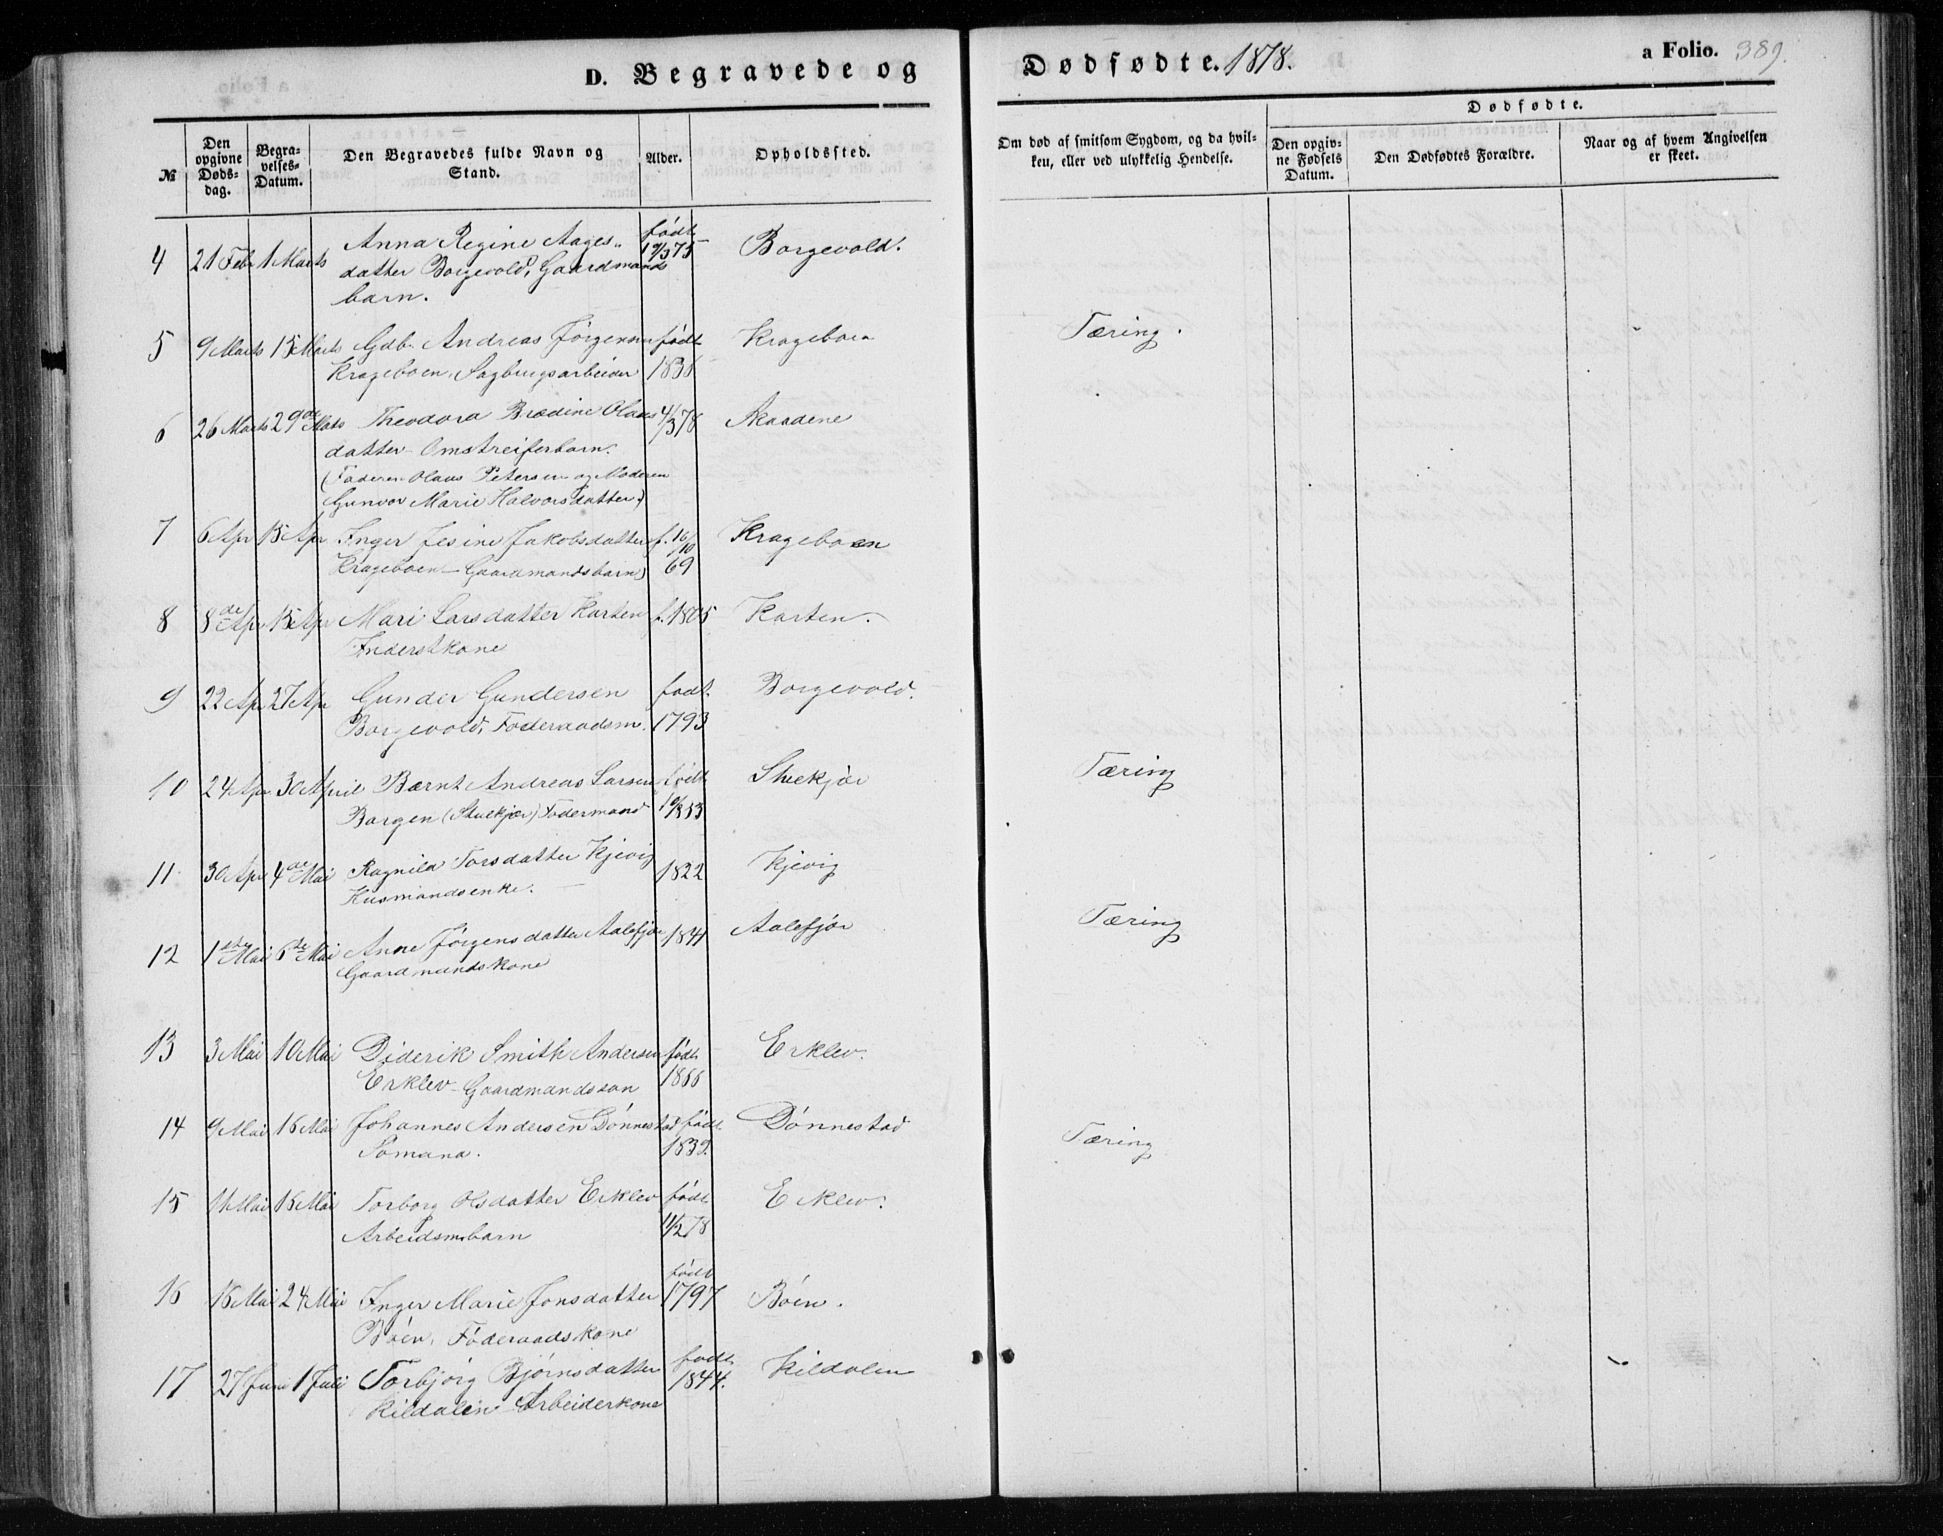 D. Begravede og Dødfødte. 1878. a Folio. 389.
№
Den opgivne Døds-dag.
Begra-velses-Datum.
Den Begravedes fulde Navn og Stand.
Alder.
Opholdssted.
Om død af smitsom Sygdom, og da hvil-
ken, eller ved ulykkelig Hendelse.
Dødfødte.
Den opgiv-ne Fødsels Datum.
Den Dødfødtes Forældre.
Naar og af hvem Angivelsen er skeet.
4 21 Feb 1 Marts Anna Regine Aages- født 19/3 75 Borgevold.
datter Borgevold, Gaardmands
barn.
5 9 Marts 15 Marts Gdb. Andreas Jørgensen født Krageboen Tæring.
Krageboen, Sagbrugsarbeider 1836
6 26 Marts 29de Marts Theodora Brædine Olaus 4/3 78 Skaadene
datter - Omstreiferbarn.
(Faderen Olaus Petersen og Moderen
Gunvor Marie Halvorsdatter)
7 6 Apr 15 Apr Inger Jesine Jakobsdatter f. 16/10 Krageboen
Krageboen - Gaardmandsbarn) 69
8 8de Apr 15 Apr Mari Larsdatter Karten f. 1805 Karten.
Inderstkone
9 22 Apr 27 Apr Gunder Gundersen født. Borgevold.
Borgevold, Føderaadsm. 1793
10 24 Apr 30 April Bærnt Andreas Larsen født Stuekjær Tæring
Borgen (Stuekjær)
11 30 Apr 4de Mai Ragnild Torsdatter Kjevig 1822 Kjevig
Husmandsenke.
12 1ste Mai 6te Mai Anne Jørgensdatter Aalefjær 1841 Aalefjær Tæring
Gaardmandskone
13 3 Mai 10 Mai Diderik Smith Andersen født Erklev.
Erklev - Gaardmandssøn 1866
14 9 Mai 16 Mai Johannes Andersen Dønnestad født Dønnestad Tæring
Sømand. 1832
15 11 Mai 15 Mai Torborg Olsdatter Erklev født Erklev.
Arbeidsm.barn 11/2 78
16 16 Mai 24 Mai Inger Marie Jonsdatter født 1797 Bøen.
Bøen, Føderaadskone
17 27 Juni 1 Juli Torbjørg Bjørnsdatter født 1844. Kildalen
Kildalen Arbeiderkone